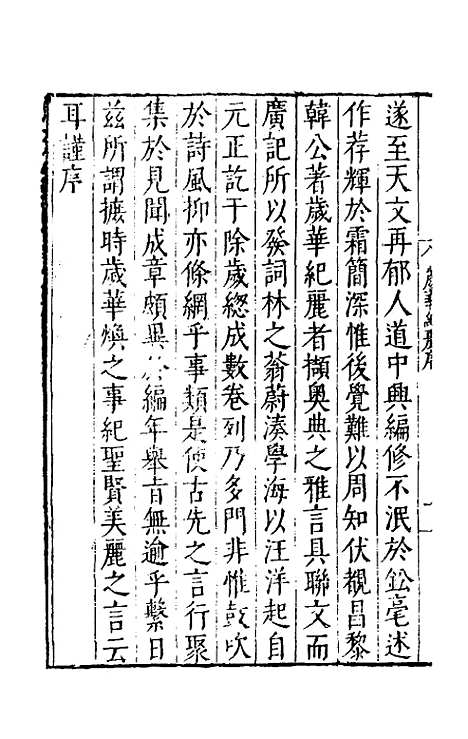 歲華紀麗序
遂至天文再郁人道中興編修不泯於鈆毫述
作荐輝於霜簡深惟後覺難以周知伏覩昌黎
韓公著歲華紀麗者擷奧典之雅言具聯文而
廣記所以發詞林之蓊蔚湊學海以汪洋起自
元正訖于除歲緫成數卷列乃多門非惟鼓吹
於詩風抑亦條綱乎事類是使古先之言行聚
集於見聞成章頗異於編年舉旨無逾乎繫日
兹所謂摭時歲華煥之事紀聖賢美麗之言云
耳謹序